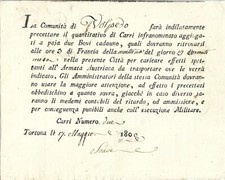 La Comunità di Volpedo farà indilatamente
precettare il quantitativo di Carri infranominato aggioga-
ti a paja due Bovi cadauno, quali dovranno ritrovarsi
alle ore 8 di Francia della mattina del giorno
nella presente Città per caricare effetti spet-
tanti all'Armata Austriaca da trasportare ove le verrà
indicato. Gli Amministratori della stessa Comunità dovran-
no usare la maggiore attenzione, ad effetto i precettati
obbediscano a quanto sovra, giacchè in caso diverso sa-
ranno li medemi contabili del ritardo, ed ammissione, e
per conseguenza punibili anche coll'esecuzione Militare.
Carri Numero due
Tortona li 17. Maggio 180